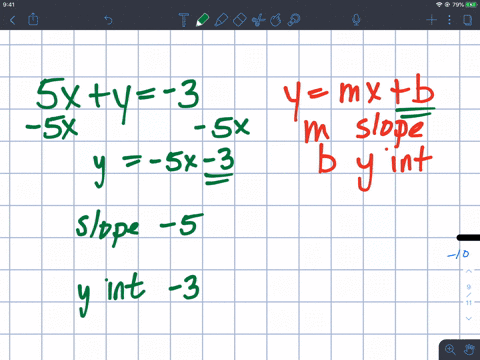 9:41
79%
5x+y=-3
-5x -5x
y = -5x-3
slope -5
y int -3
y = mx+b
m slope
b y int
-10
9
/
11